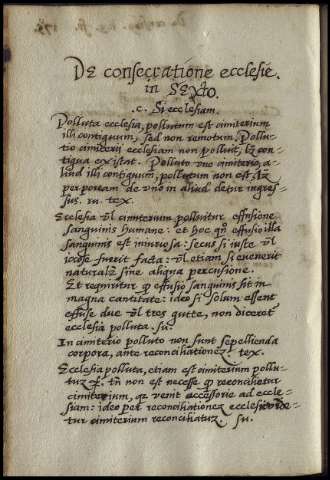 De consecratione ecclesie.
in Sexto.
.c. Si ecclesiam.
Polluta ecclesia, pollutum est cimiterium
illi contiguum, sed non remotum. Pollu-
tio cimiterii ecclesiam non polluit, lz con-
tigua existat. Polluto uno cimiterio, a-
liud illi contiguum, pollutum non est, lz
per portam de uno in aliud detur ingres-
sus. tex.
Ecclesia vl cimiterium polluitur effusione
sanguinis humane: et hoc qn effusio illa
sanguinis est iniuriosa: secus si iuste vl
iocose fuerit facta: vl etiam si evenerit
naturalr sine aliqua percusione.
Et requiritur q effusio sanguinis sit in
magna cantitate: ideo si solum essent
effuse due vl tres gutte, non diceret
ecclesia polluta. su.
In cimiterio polluto non sunt sepellienda
corpora, ante reconciliationez. tex.
Ecclesia polluta, etiam est cimiterium pollu-
tuz tn non est necesse q reconcilietur
cimiterium, que venit accessorie ad eccle-
siam: ideo per reconciliationez ecclesie
tur cimiterium reconciliatuz. su.